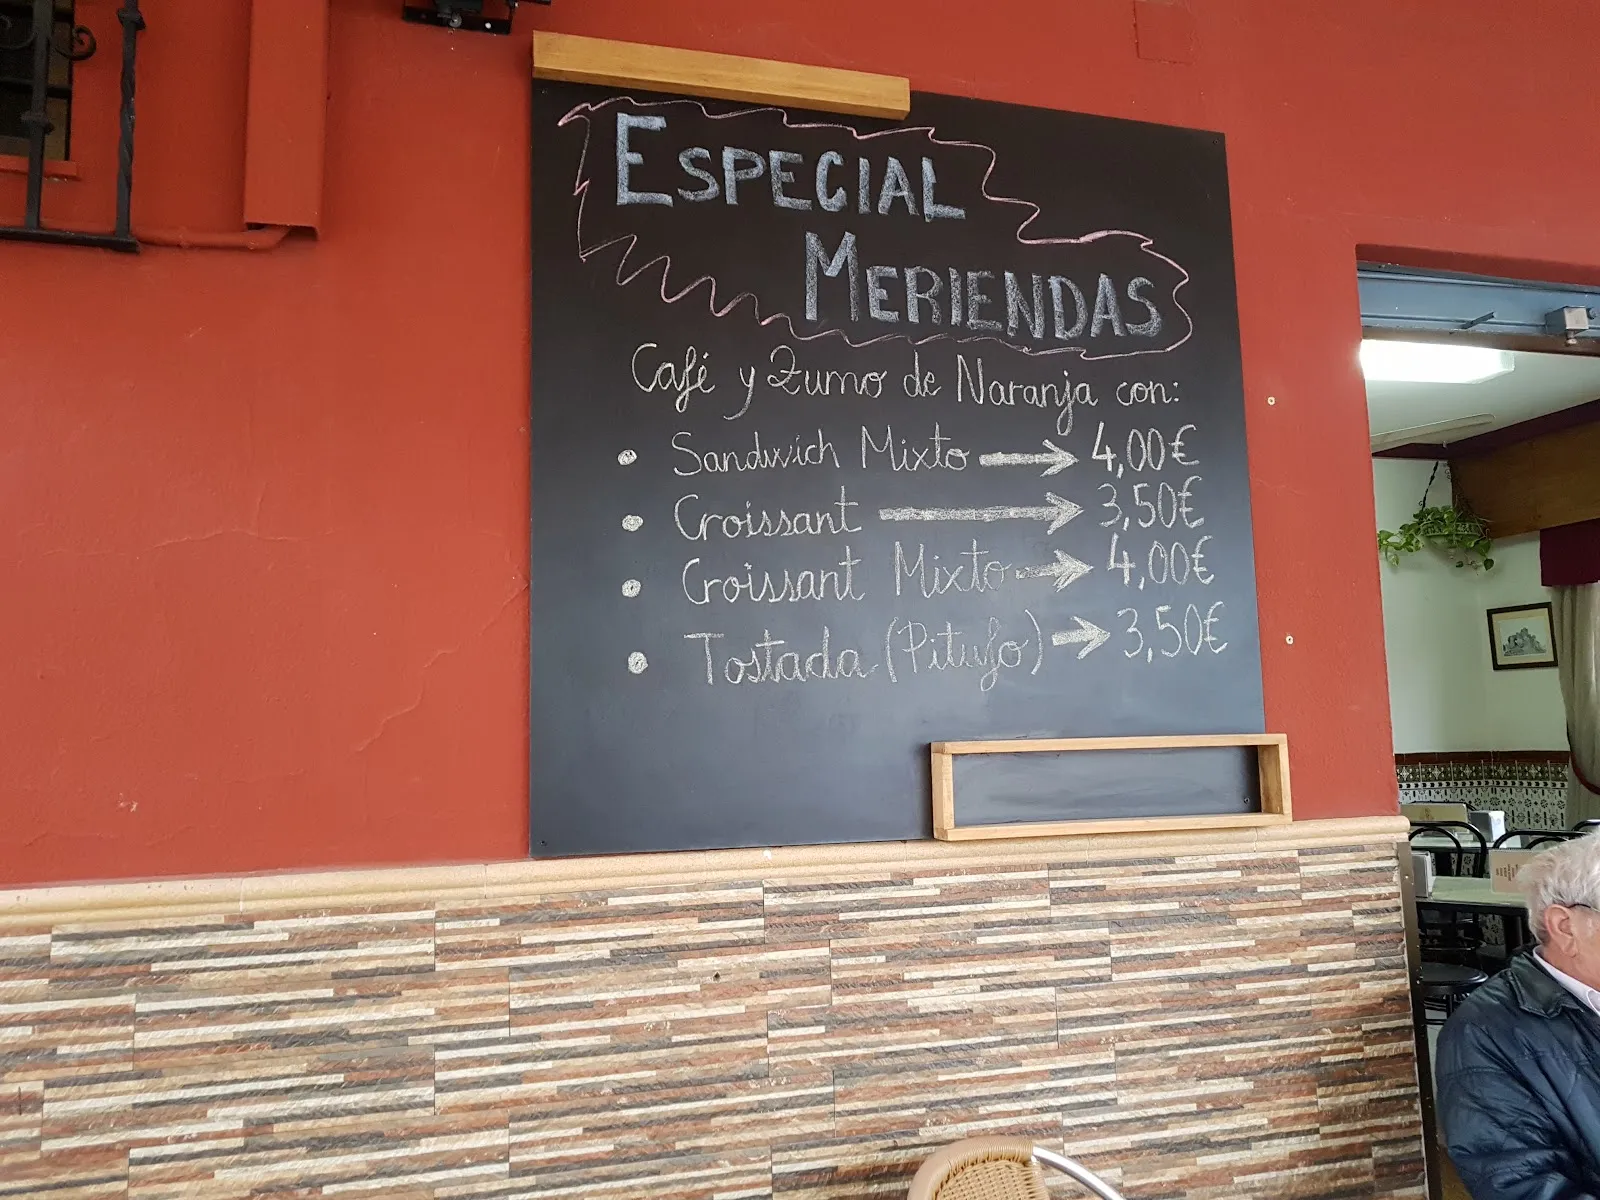 ESPECIAL
MERIENDAS
Café y Zumo de Naranja con:
• Sandwich Mixto → 4,00€
• Croissant → 3,50€
• Croissant Mixto → 4,00€
• Tostada (Pitufo) → 3,50€